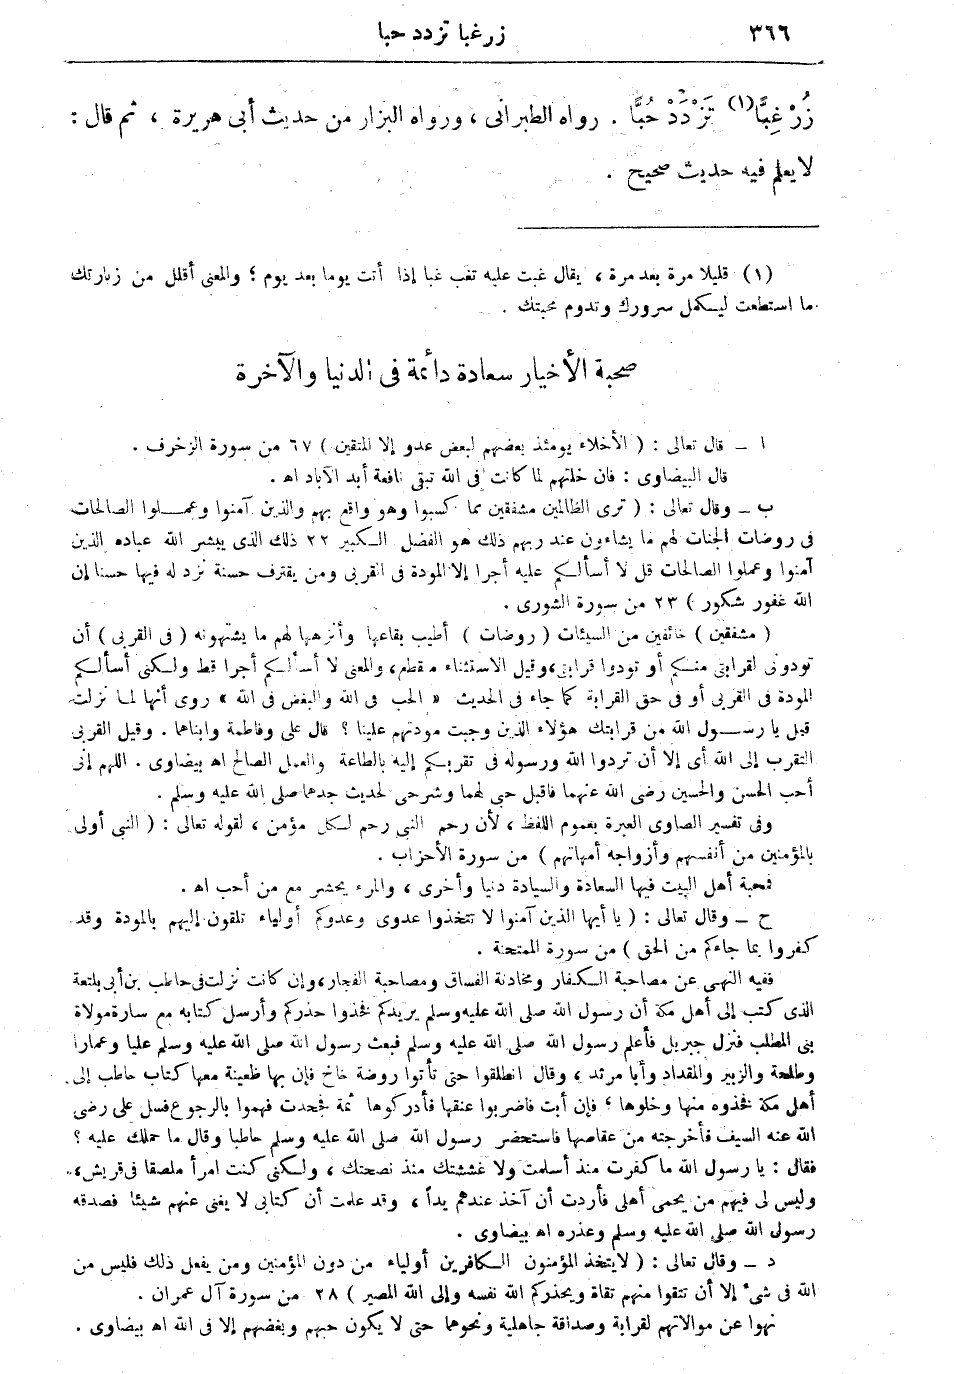 ٣٦٦
زر غبا تزدد حبا
زُرْ غِبًّا(١) تَزْدَدْ حُبًّا . رواه الطبرانى ، ورواه البزار من حديث أبى هريرة ، ثم قال :
لا يعلم فيه حديث صحيح .
(١) قليلا مرة بعد مرة ، يقال غبت عليه تغب غبا إذا أتت يوما بعد يوم ؛ والمعنى أقلل من زيارتك
ما استطعت ليكمل سرورك وتدوم محبتك .
صحبة الأخيار سعادة دائمة فى الدنيا والآخرة
ا ــ قال تعالى : ( الأخلاء يومئذ بعضهم لبعض عدو إلا المتقين ) ٦٧ من سورة الزخرف .
قال البيضاوى : فان خلتهم لما كانت فى الله تبقى نافعة أبد الآباد اه .
ب ــ وقال تعالى : ( ترى الظالمين مشفقين مما كسبوا وهو واقع بهم والذين آمنوا وعمــلوا الصالحات
فى روضات الجنات لهم ما يشاءون عند ربهم ذلك هو الفضل الكبير ٢٢ ذلك الذى يبشر الله عباده الذين
آمنوا وعملوا الصالحات قل لا أسألكم عليه أجرا إلا المودة فى القربى ومن يقترف حسنة نزد له فيها حسنا إن
الله غفور شكور ) ٢٣ من سورة الشورى .
( مشفقين ) خائفين من السيئات ( روضات ) أطيب بقاعها وأنزهها لهم ما يشتهونه ( فى القربى ) أن
تودونى لقرابتى منكم أو تودوا قرابتى،وقيل الاستثناء منقطع، والمعنى لا أسألكم أجرا قط ولكنى أسألكم
المودة فى القربى أو فى حق القرابة كما جاء فى الحديث « الحب فى الله والبغض فى الله » روى أنها لما نزلت
قيل يا رســول الله من قرابتك هؤلاء الذين وجبت مودتهم علينا ؟ قال على وفاطمة وابناهما . وقيل القربى
التقرب إلى الله أى إلا أن تردوا الله ورسوله فى تقربكم إليه بالطاعة والعمل الصالح اه بيضاوى . اللهم إنى
أحب الحسن والحسين رضى الله عنهما فاقبل حبى لهما وشرحى لحديث جدهما صلى الله عليه وسلم .
وفى تفسير الصاوى العبرة بعموم اللفظ ، لأن رحم النبى رحم لكل مؤمن ، لقوله تعالى : ( النبى أولى
بالمؤمنين من أنفسهم وأزواجه أمهاتهم ) من سورة الأحزاب .
فمحبة أهل البيت فيها السعادة والسيادة دنيا وأخرى ، والمرء يحشر مع من أحب اه .
ح ــ وقال تعالى : ( يا أيها الذين آمنوا لا تتخذوا عدوى وعدوكم أولياء تلقون إليهم بالمودة وقد
كفروا بما جاءكم من الحق ) من سورة الممتحنة .
ففيه النهى عن مصاحبة الكفار ومخادنة الفساق ومصاحبة الفجار،وإن كانت نزلت فى حاطب بن أبى بلتعة
الذى كتب إلى أهل مكة أن رسول الله صلى الله عليه وسلم يريدكم فخذوا حذركم وأرسل كتابه مع سارة مولاة
بنى المطلب فنزل جبريل فأعلم رسول الله صلى الله عليه وسلم فبعث رسول الله صلى الله عليه وسلم عليا وعمارا
وطلحة والزبير والمقداد وأبا مرثد ، وقال انطلقوا حتى تأتوا روضة خاخ فإن بها ظعينة معها كتاب حاطب إلى
أهل مكة فخذوه منها وخلوها ؛ فإن أبت فاضربوا عنقها فأدركوها ثمة فجحدت فهموا بالرجوع فسل على رضى
الله عنه السيف فأخرجته من عقاصها فاستحضر رسول الله صلى الله عليه وسلم حاطبا وقال ما حملك عليه ؟
فقال : يا رسول الله ما كفرت منذ أسلمت ولا غششتك منذ نصحتك ، ولكنى كنت امرأ ملصقا فى قريش،
وليس لى فيهم من يحمى أهلى فأردت أن آخذ عندهم يداً ، وقد علمت أن كتابى لا يغنى عنهم شيئا فصدقه
رسول الله صلى الله عليه وسلم وعذره اه بيضاوى .
د ــ وقال تعالى : ( لا يتخذ المؤمنون الكافرين أولياء من دون المؤمنين ومن يفعل ذلك فليس من
الله فى شىء إلا أن تتقوا منهم تقاة ويحذركم الله نفسه وإلى الله المصير ) ٢٨ من سورة آل عمران .
نهوا عن موالاتهم لقرابة وصداقة جاهلية ونحوهما حتى لا يكون حبهم وبغضهم إلا فى الله اه بيضاوى .